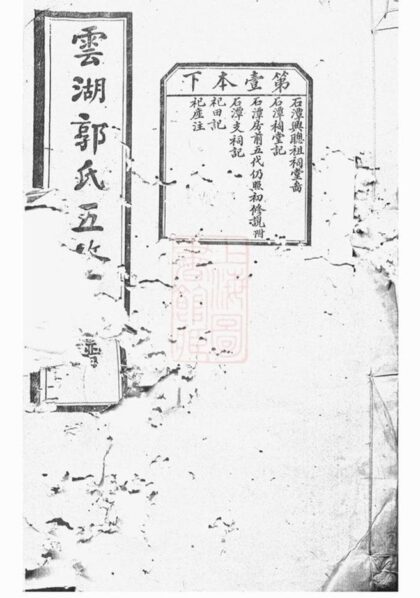 第壹本下
石潭興聰祖祠堂
石潭祠堂記
石潭房前五代仍照初修説附
石潭支祠記
祀田記
祀産注
雲湖郭氏五修
譜